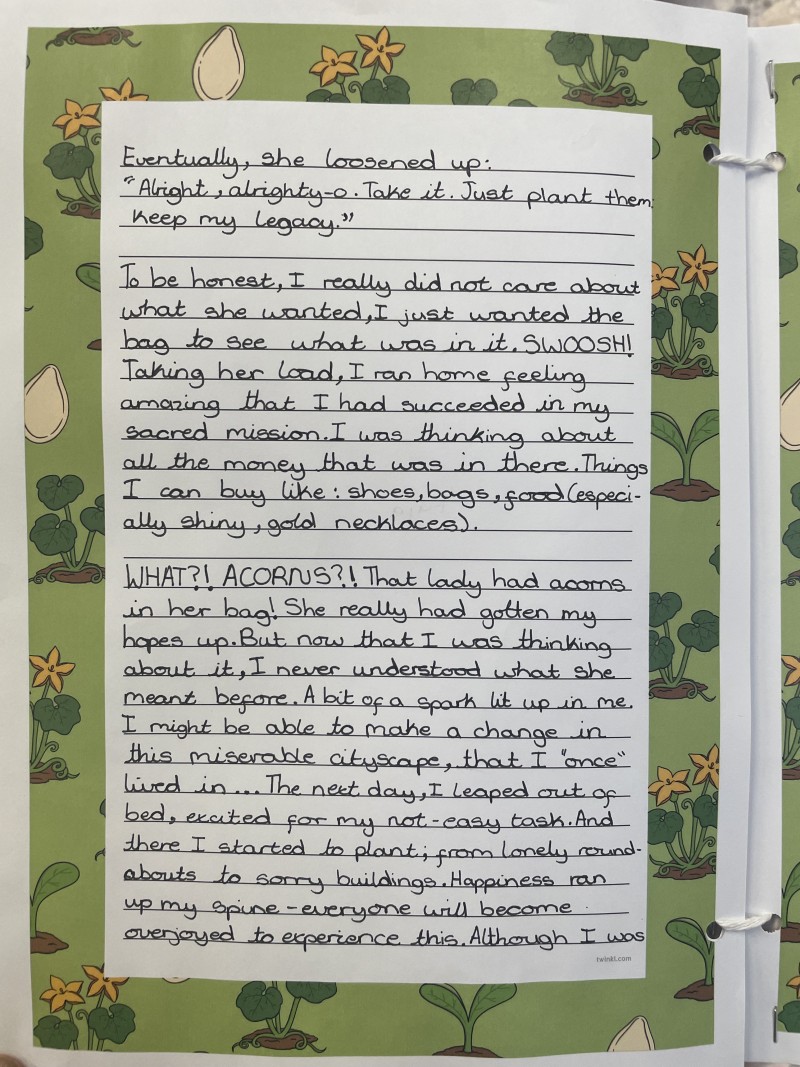 Eventually, she loosened up:
"Alright, alrighty-o. Take it. Just plant them.
Keep my legacy."
To be honest, I really did not care about
what she wanted, I just wanted the
bag to see what was in it. SWOOSH!
Taking her load, I ran home feeling
amazing that I had succeeded in my
sacred mission. I was thinking about
all the money that was in there. Things
I can buy like: shoes, bags, food (especi-
ally shiny, gold necklaces).
WHAT?! ACORNS?! That lady had acorns
in her bag! She really had gotten my
hopes up. But now that I was thinking
about it, I never understood what she
meant before. A bit of a spark lit up in me.
I might be able to make a change in
this miserable cityscape, that I "once"
lived in... The next day, I leaped out of
bed, excited for my not-easy task. And
there I started to plant; from lonely round-
abouts to sorry buildings. Happiness ran
up my spine - everyone will become
overjoyed to experience this. Although I was
twinkl.com